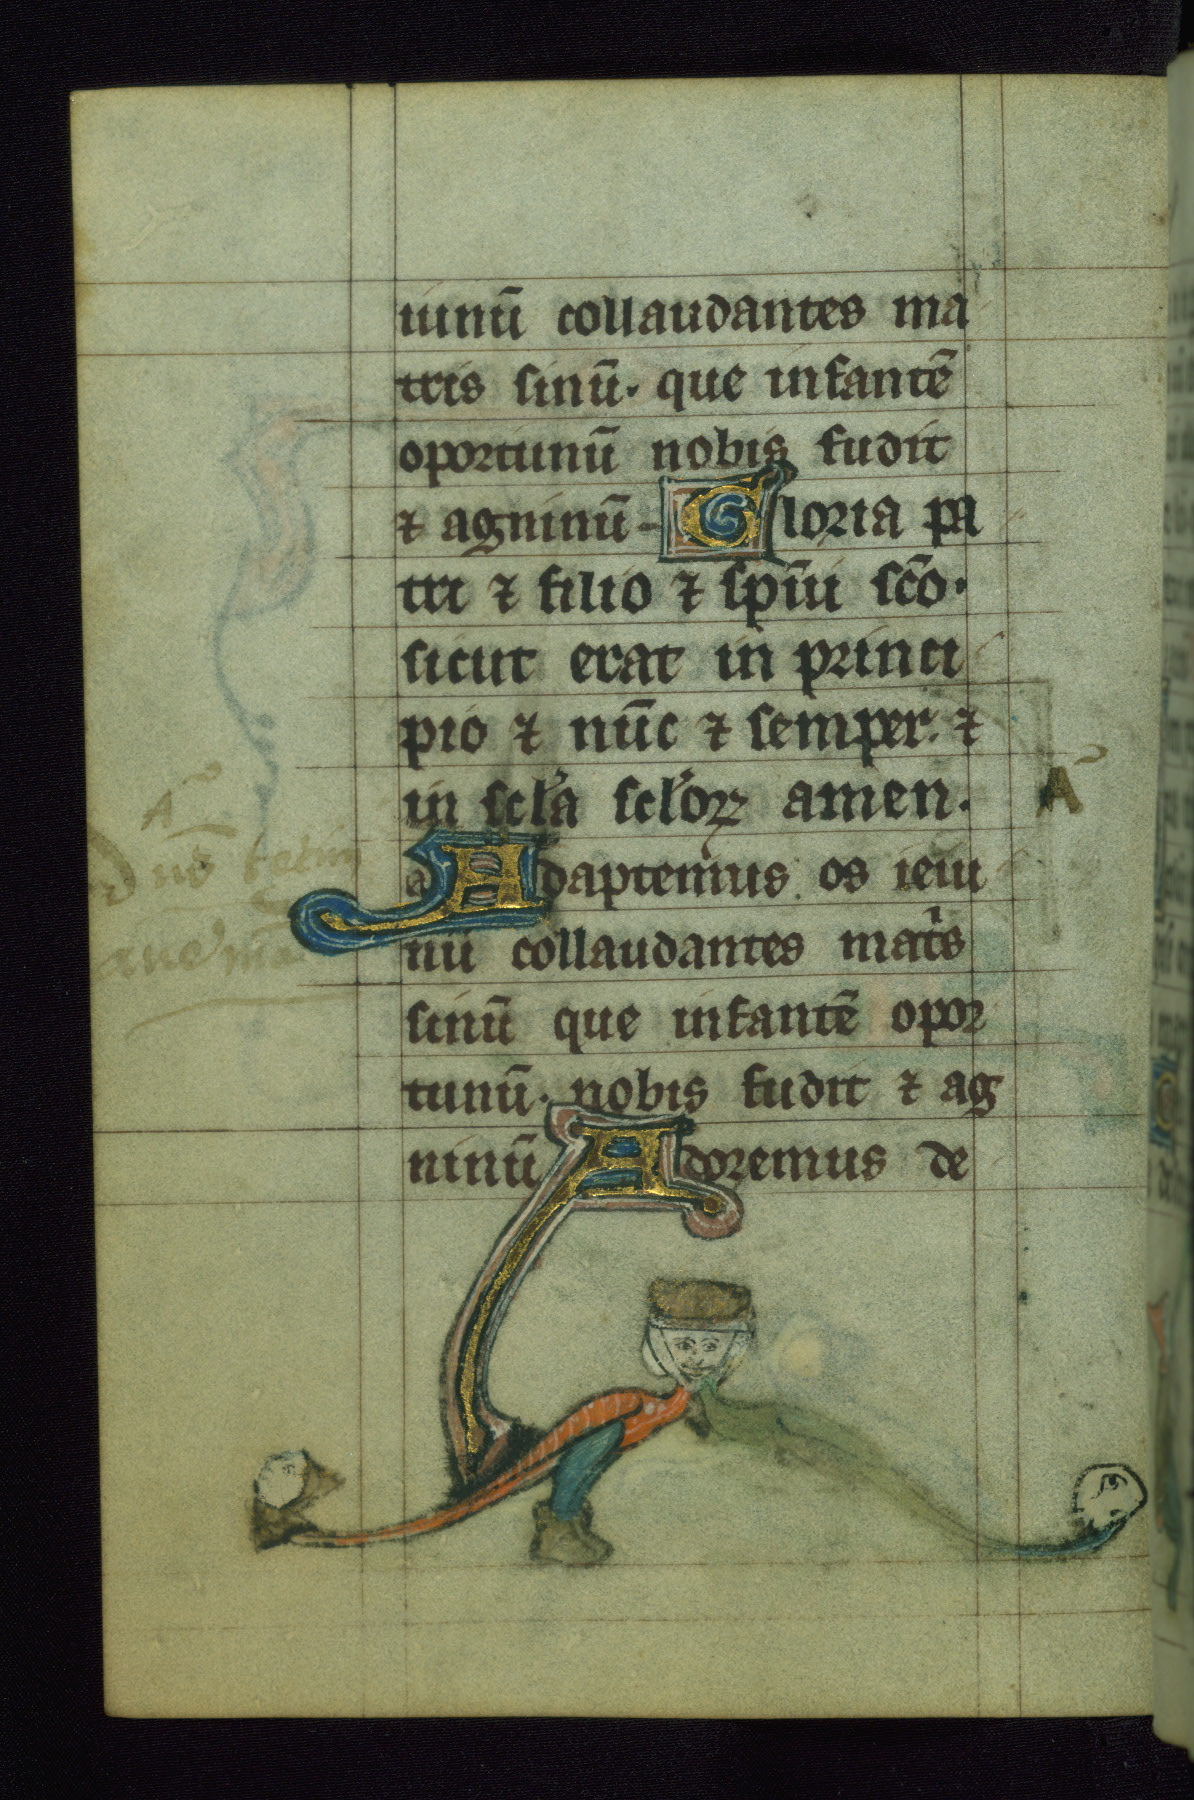 iuinū collaudantes ma
tris sinū. que infantē
oportunū nobis fudit
⁊ agninū Gloria pa
tri ⁊ filio ⁊ sp̄ui sc̄o.
sicut erat in princi
pio ⁊ nūc ⁊ semper. ⁊
in scl̄a scl̄oꝝ amen.
Adaptemus os ieiu
nū collaudantes mat̓s
sinū que infantē opor
tunū. nobis fudit ⁊ ag
ninū Adoremus de
A
A